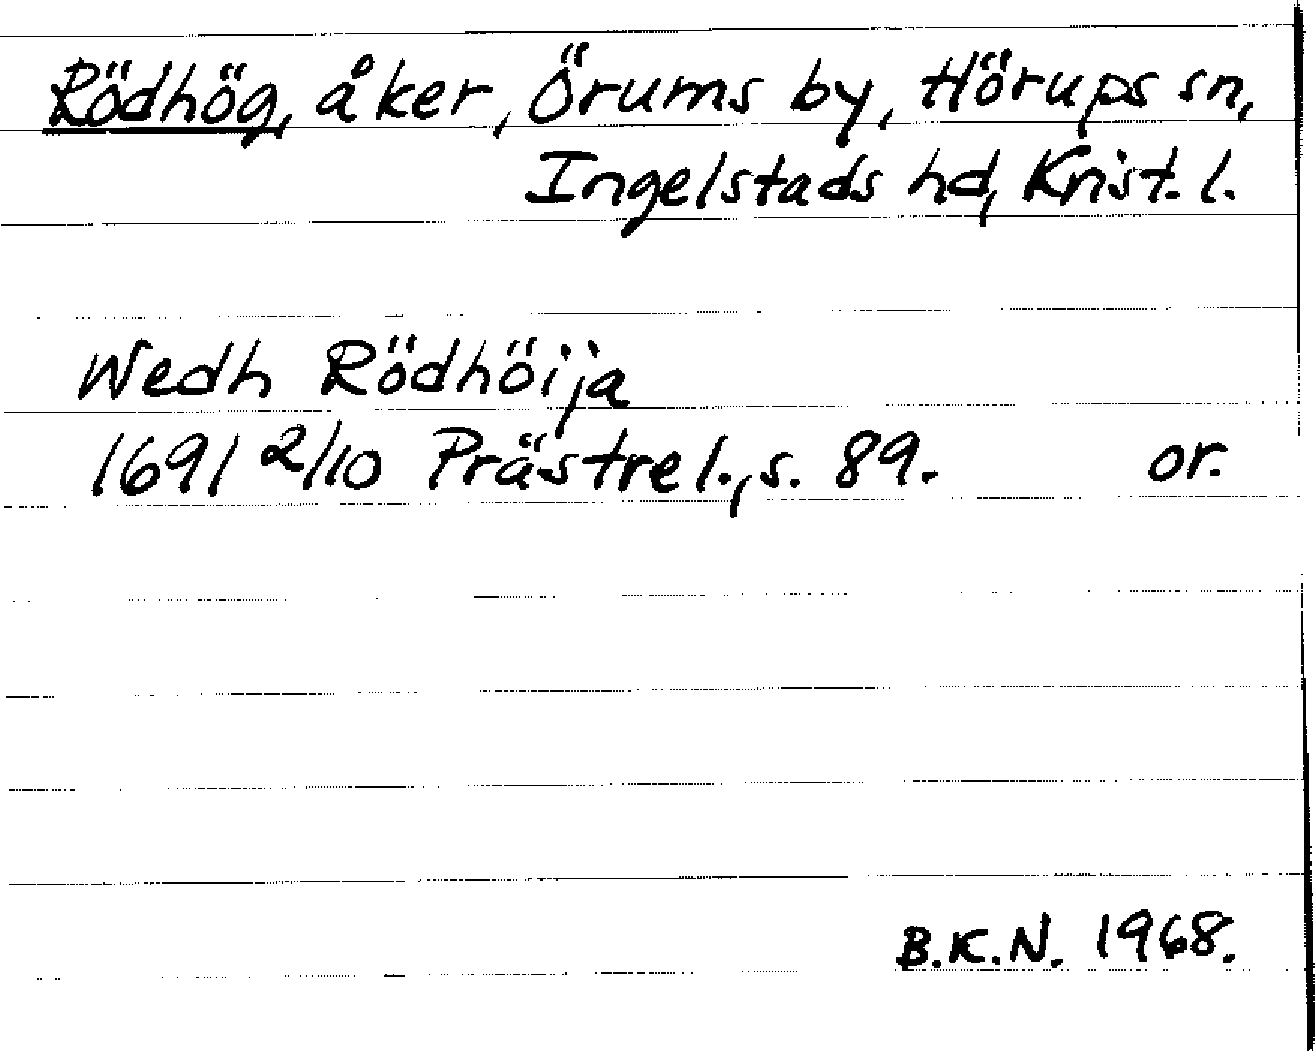 Rödhög, åker, Örums by, Hörups sn,
Ingelstads hd, Krist. l.
Wedh Rödhöija
1691 2/10 Prästrel., s. 89. or.
B.K.N. 1968.